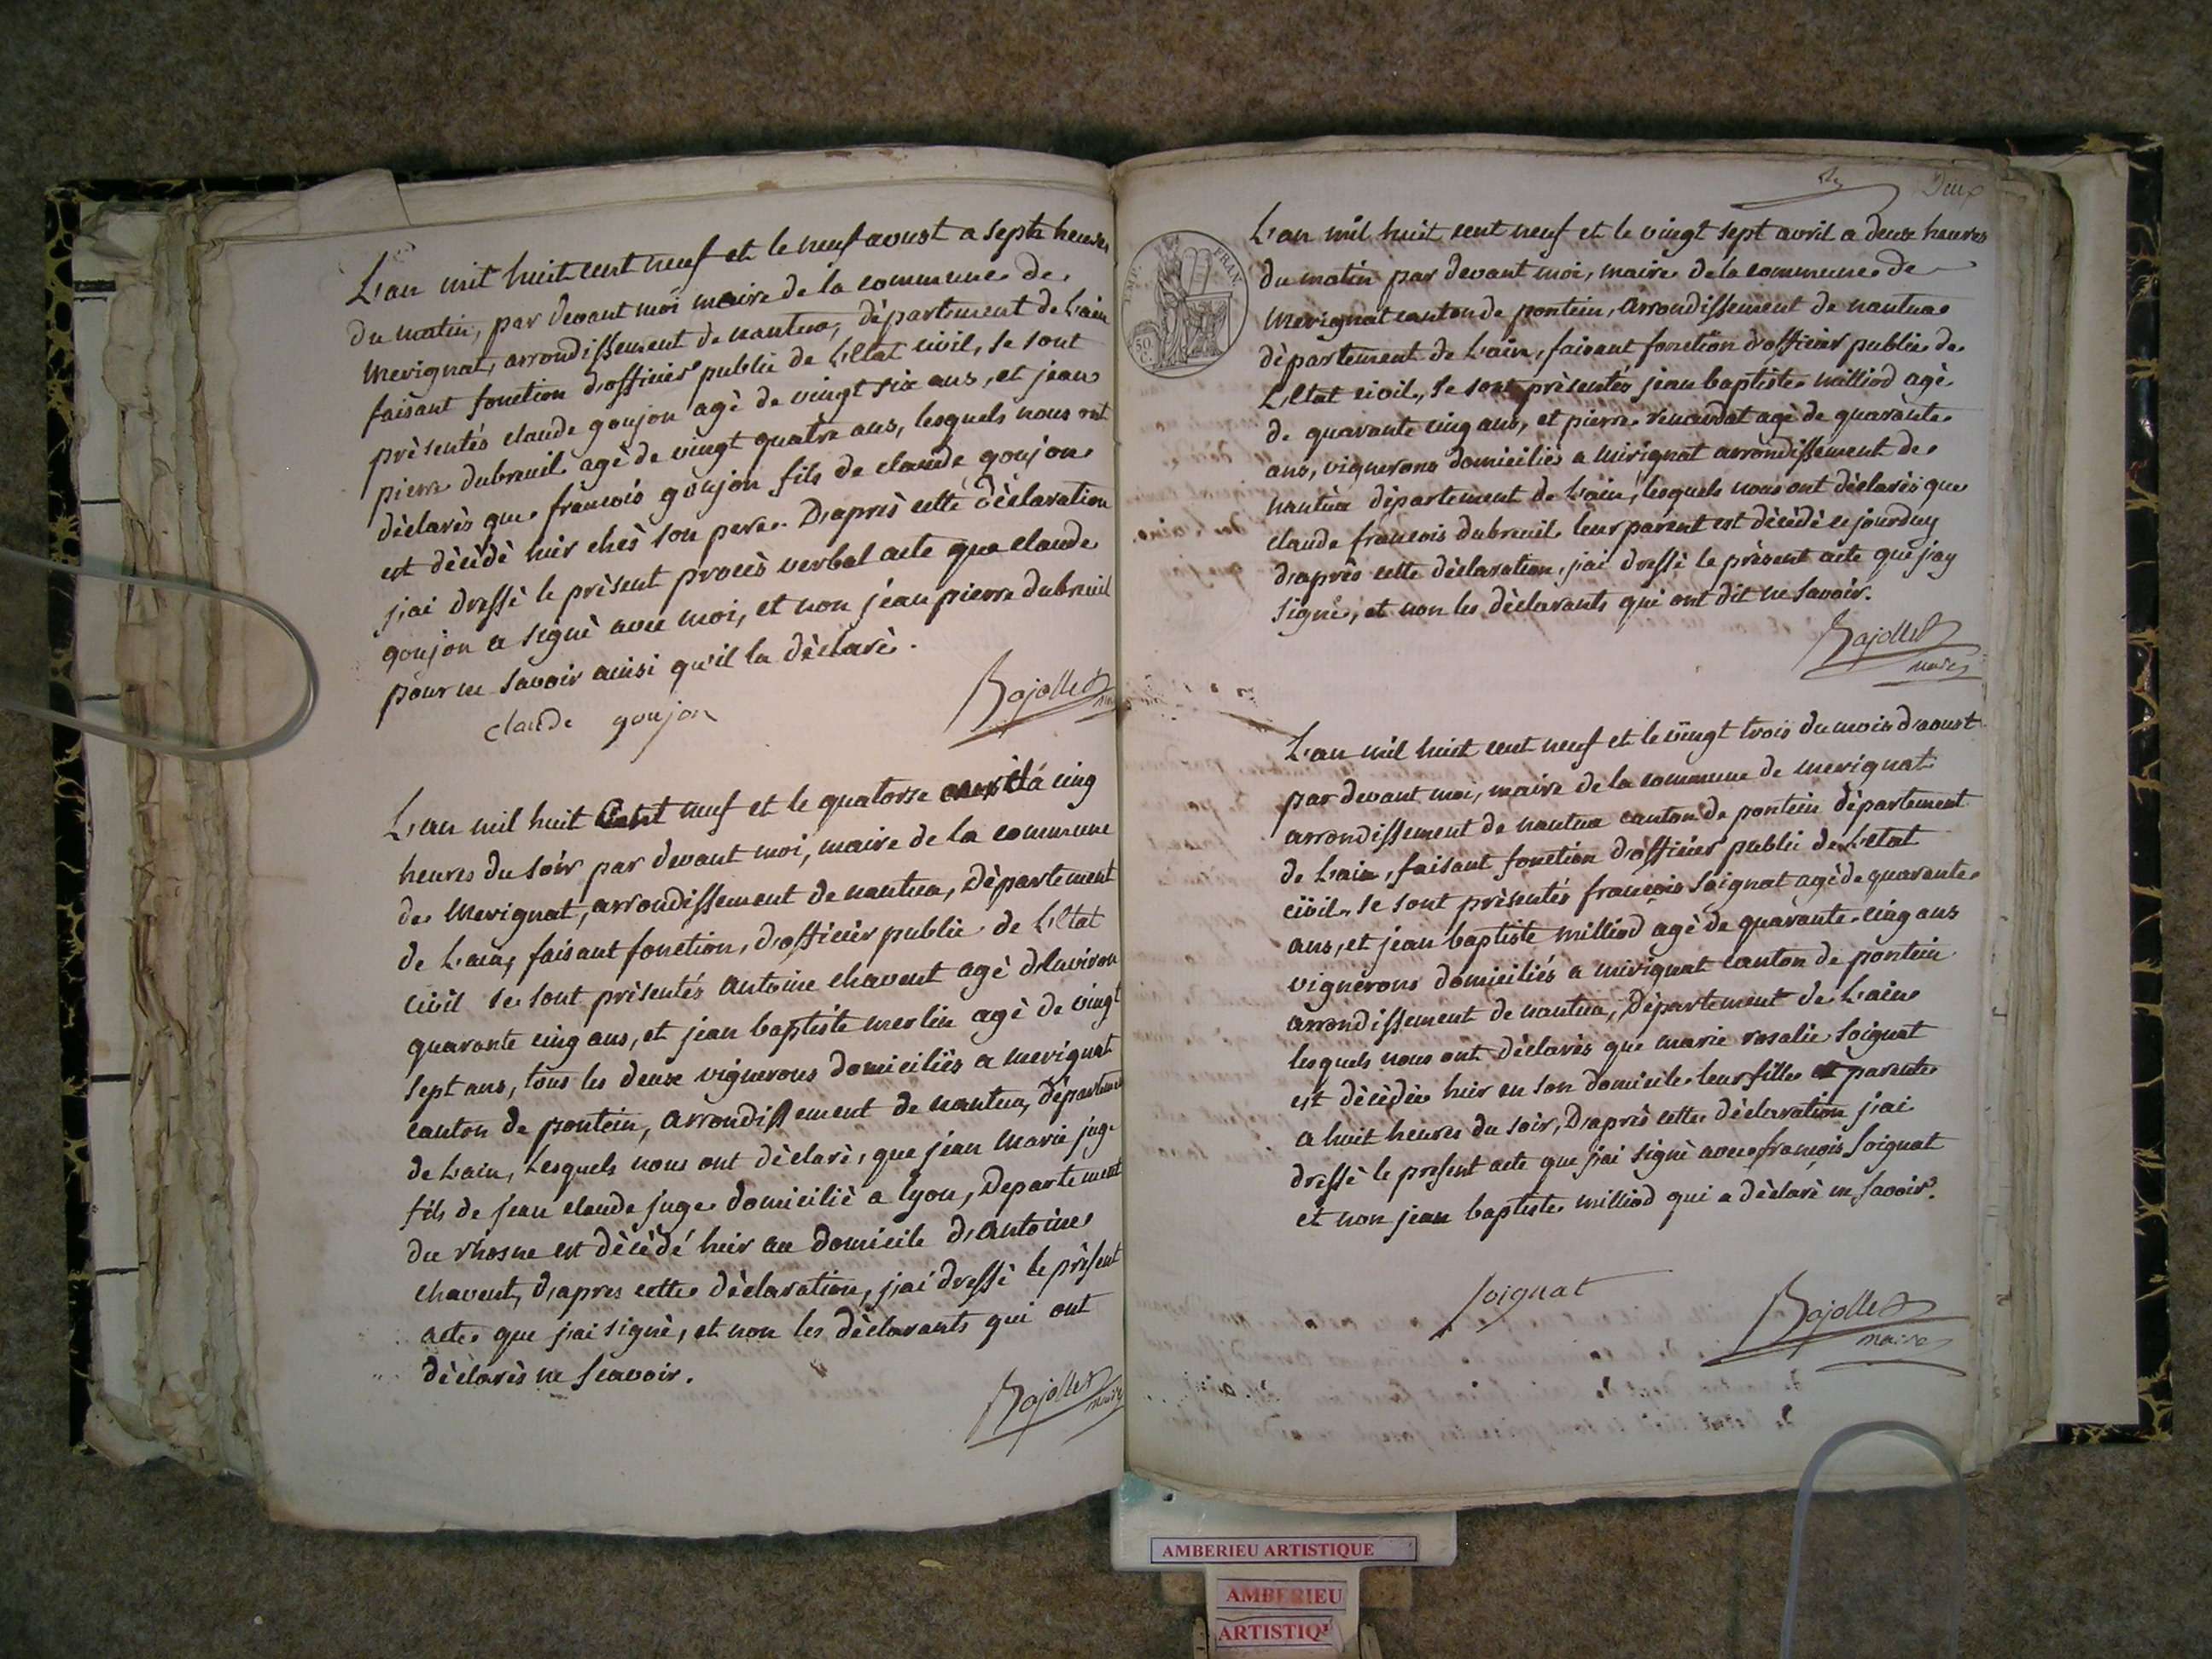 L'an mil huit cent neuf et le neuf aoust a sept heures
du matin, par devant moi maire de la commune de
Merignat, arrondissement de nantua, département de L'ain
faisant fonction d'officier public de L'Etat civil, se sont
prèsentés claude goujon agè de vingt six ans, et jean
pierre dubreuil agè de vingt quatre ans, lesquels nous ont
dèclarès que francois goujon fils de claude goujon
est dècèdè hier chès son pere. D'après cette dèclaration
j'ai dressè le prèsent procès verbal acte que claude
goujon a signè avec moi, et non jean pierre dubreuil
pour ne savoir ainsi qu'il la dèclarè.
claude goujon
Bajollet
maire
L'an mil huit Cent neuf et le quatorze avril à cinq
heures du soir par devant moi, maire de la commune
de Merignat, arrondissement de nantua, Dèpartement
de L'ain, faisant fonction, d'officièr public de L'Etat
Civil se sont prèsentés antoine chavent agè d'Environ
quarante cinq ans, et jean baptiste merlin agè de vingt
sept ans, tous les deux vignerons domiciliès a merignat
canton de pontein, arrondissement de nantua, dèpartement
de L'ain, Lesquels nous ont dèclarè, que jean Marie juge
fils de jean claude juge domiciliè a lyon, Departement
du rhosne est dècèdé hier au domicile d'antoine
chavent, d'apres cette dèclaration, j'ai dressè le prèsent
acte que j'ai signè, et non les dèclarants qui ont
dèclarès ne scavoir.
Bajollet
maire
Deux
L'an mil huit cent neuf et le vingt sept avril a deux heures
du matin par devant moi, maire de la commune de
Merignat canton de pontein, arrondissement de nantua
dèpartement de L'ain, faisant fonction d'officier public de
L'Etat civil, se sont prèsentés jean baptiste milliod agè
de quarante cinq ans, et pierre renaudat agè de quarante
ans, vignerons domiciliès a mirignat arrondissement de
nantua dèpartement de L'ain, lesquels nous ont dèclarès que
claude francois dubreuil leur parent est dècèdè ce jourduy
d'après cette dèclaration, j'ai dressè le prèsent acte que j'ay
signè, et non les dèclarants qui ont dit ne savoir.
Bajollet
maire
L'an mil huit cent neuf et le vingt trois du mois d'aoust
par devant moi, maire de la commune de merignat
arrondissement de nantua canton de pontein dèpartement
de L'ain, faisant fonction d'officier public de L'etat
civil, se sont prèsentés francois soignat agè de quarante
ans, et jean baptiste milliod agè de quarante cinq ans
vignerons domiciliés a mirignat canton de pontein
arrondissement de nantua, Dèpartement de L'ain
lesquels nous ont dèclarès que marie rosalie soignat
est dècèdèe hier en son domicile leur fille et parente
a huit heures du soir, D'après cette dèclaration j'ai
dressè le present acte que j'ai signè avec francois soignat
et non jean baptiste milliod qui a dèclarè ne savoir.
soignat
Bajollet
maire
EMP. FRAN.
50
AMBERIEU ARTISTIQUE
AMBERIEU
ARTISTIQ